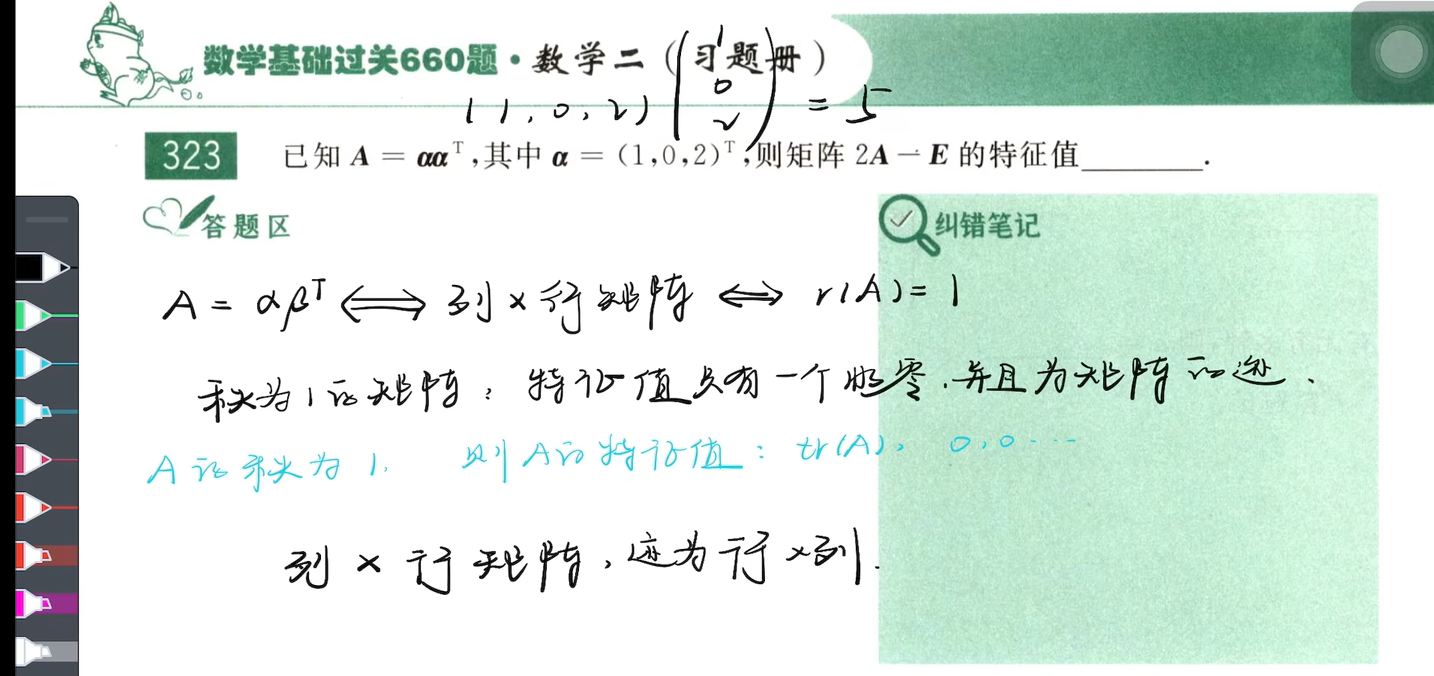 数学基础过关660题·数学二(习题册)
(1,0,2)(1 0 2) = 5
323 已知 A = αα^T,其中 α = (1,0,2)^T,则矩阵 2A − E 的特征值______.
答题区
纠错笔记
A = αβ^T ⟺ 列×行矩阵 ⟺ r(A)=1
秩为1的矩阵, 特征值只有一个非零.并且为矩阵的迹.
A的秩为1. 则A的特征值: tr(A), 0,0…
列×行矩阵,迹为行×列.